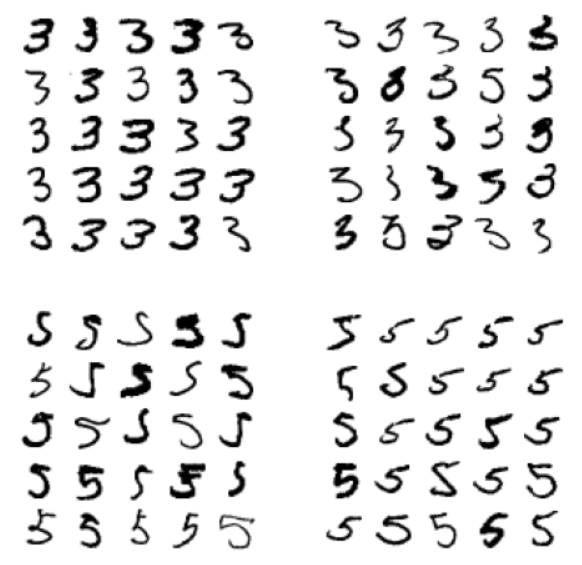 3 3 3 3 3 3 3 3 3 3
3 3 3 3 3 3 3 3
3 3 3 3 3 3 3 3 3 3
3 3 3 3 3 3 3 3 3
3 3 3 3 3 3 3 3 3
5 5 5 5 5 5 5 5 5 5
5 5 5 5 5 5 5 5 5 5
5 5 5 5 5 5 5 5 5 5
5 5 5 5 5 5 5 5 5 5
5 5 5 5 5 5 5 5 5 5